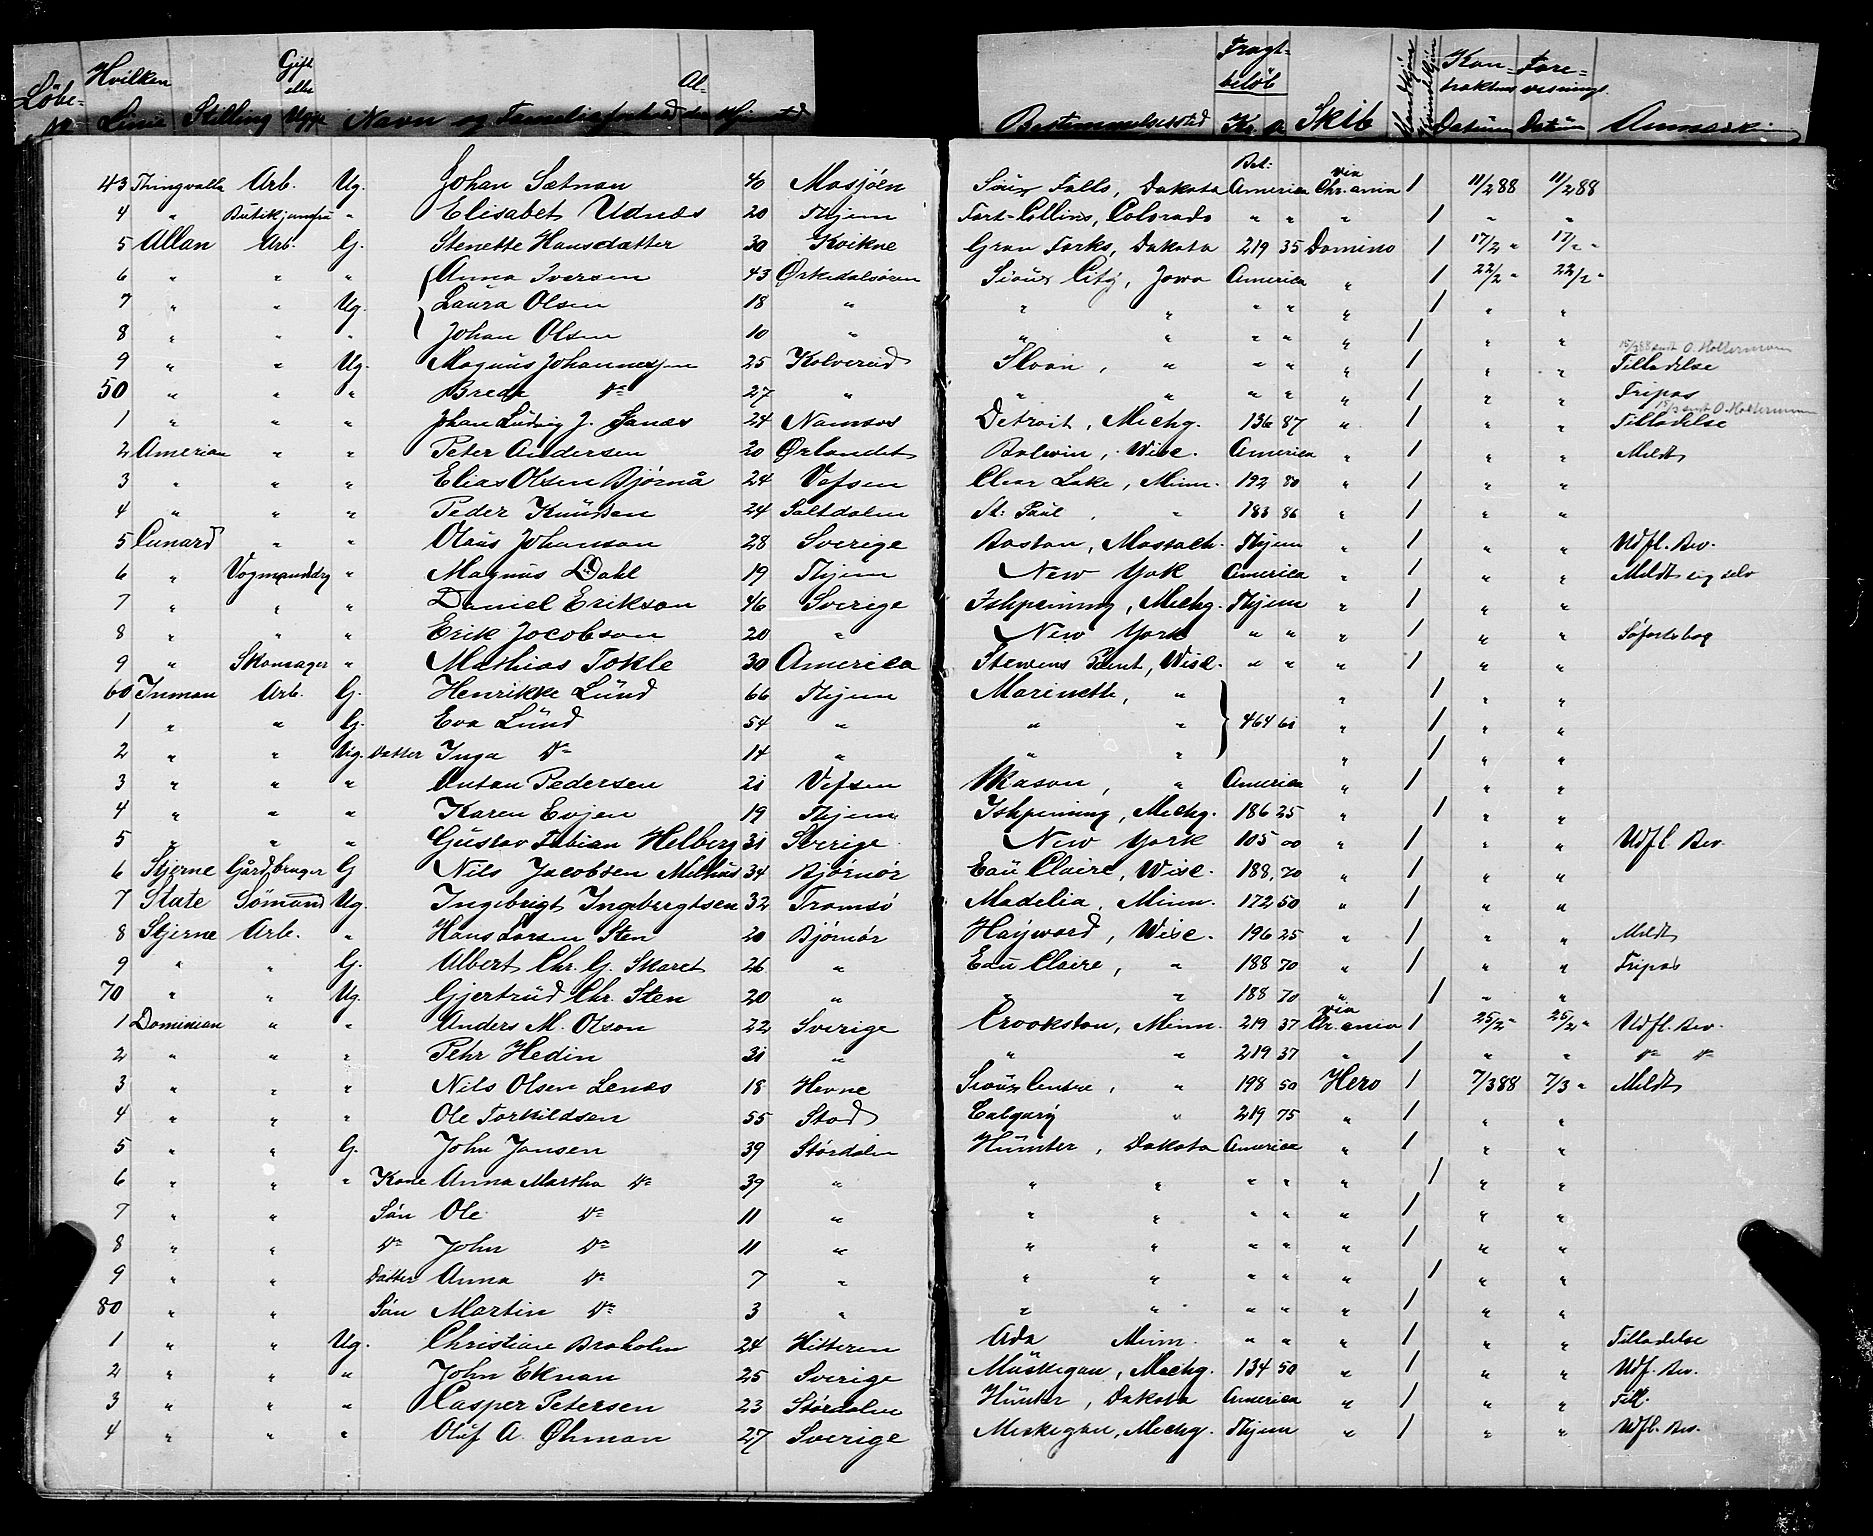 Löbe- No Hvilken Linie Stilling Gift eller Ugift Navn og Familieforhold Al- der Hjemsted Bestemmelsessted Fragt- beløb Kr. Ø. Skib Mandkjøn Kvindekjøn Kon- trakten Datum Fore- visnings Datum Anmærkn
43 Thingvalla Arb. Ug. Johan Sætnan 40 Mosjöen Sioux Falls, Dakota Bet: America via Chr.ania 1 11/2 88 11/2 88
4 " Butikjomfru " Elisabet Udnæs 20 Thjem Fort-Collins, Colorado " " " 1 " "
5 Allan Arb. G. Stenette Hansdatter 30 Kvikne Gran Forks, Dakota 219 35 Domino 1 17/2 " 17/2 "
6 " " " Anna Iversen 43 Ørkedalsören Sioux City, Jowa America " 1 22/2 " 22/2 "
7 " " Ug. Laura Olsen 18 " " " " " " 1 " "
8 " " " Johan Olsen 10 " " " " " " 1 " "
9 " " Ug. Magnus Johannesen 25 Kolvereid Sloan, " " " " 1 " " Tilladelse
50 " " " Breda Do 27 " " " " " " 1 " " Fripas
1 " " " Johan Ludvig J. Sanæs 24 Namsos Detroit, Michg. 136 87 " 1 " " Tilladelse
2 Amerian " " Peter Andersen 20 Ørlandet Balwin, Wisc. America " 1 " " Meldt
3 " " " Elias Olsen Bjørnå 24 Vefsen Clear Lake, Minn. 192 80 " 1 " "
4 " " " Peder Knudsen 24 Saltdalen St: Paul, " 183 86 " 1 " "
5 Cunard " " Olaus Johanson 28 Sverige Boston, Massach. Thjem " 1 " " Udfl. Bev.
6 " Vognmanddrg " Magnus Dahl 19 Thjem New York America " 1 " " Meldt sig selv
7 " " " Daniel Erikson 46 Sverige Ishpeming, Michg. Thjem " 1 " "
8 " " " Erik Jacobson 20 " New York " " " 1 " " Søfartsbog
9 " Skomager " Mathias Tokle 30 America Stewens Point, Wisc. " " " 1 " "
60 Inman Arb. G. Henrikke Lund 66 Thjem Marinette, " " 1 " "
1 " " G. Eva Lund 54 " " " 464 61 " 1 " "
2 " " Ug. Datter Inga Do 14 " " " " 1 " "
3 " " " Anton Pedersen 21 Vefsen Mason, " America " 1 " "
4 " " " Karen Evjen 19 Thjem Ishpeming, Michg. 186 25 " 1 " "
5 " " " Gustav Fabian Helberg 31 Sverige New York 105 00 " 1 " " Udfl. Bev.
6 Stjerne Gårdbruger G Nils Jacobsen Melhus 34 Bjørnör Eau Claire, Wisc. 188, 70 " 1 " "
7 State Sømand Ug. Ingebrigt Ingebrigtsen 32 Tromsö Madelia, Minn. 172 50 " 1 " "
8 Stjerne Arb. " Hans Larsen Sten 20 Bjørnör Hayward, Wisc. 196 25 " 1 " " Meldt
9 " " G. Albert Chr. G. Skaret 26 " Eau Claire, " 188 70 " 1 " " Fripas
70 " " Ug. Gjertrud Chr. Sten 20 " " " 188 70 " 1 " "
1 Dominian " " Anders M. Olson 22 Sverige Crookston, Minn. 219 37 via Chr.ania 1 25/2 " 25/2 " Udfl. Bev.
2 " " " Pehr Hedin 31 " " " 219 37 " 1 " " Do Do
3 " " " Nils Olsen Lenæs 18 Hevne Sioux Centre, " 198 50 Hero 1 7/3 88 7/3 " Meldt
4 " " " Ole Torkildsen 55 Stod Calgary " 219 75 " 1 " "
5 " " G. John Jansen 39 Størdalen Hunter, Dakota America " 1 " "
6 " " " Kone Anna Martha Do 39 " " " " " " 1 " "
7 " " Søn Ole Do 11 " " " " " " 1 " "
8 " " Do John Do 11 " " " " " " 1 " "
9 " " Datter Anna Do 7 " " " " " " 1 " "
80 " " Søn Martin Do 3 " " " " " " 1 " "
1 " " Ug. Christian Braholm 24 Hitteren Ada Minn. " " " 1 " " Tilladelse
2 " " " John Eknan 25 Sverige Muskegan, Michg. 134 50 " 1 " " Udf. Bev.
3 " " " Casper Petersen 23 Størdalen Hunter, Dakota America " 1 " " Till.
4 " " " Oluf A. Øhman 27 Sverige Muskegan, Michg. Thjem " 1 " " Udfl. Bev.